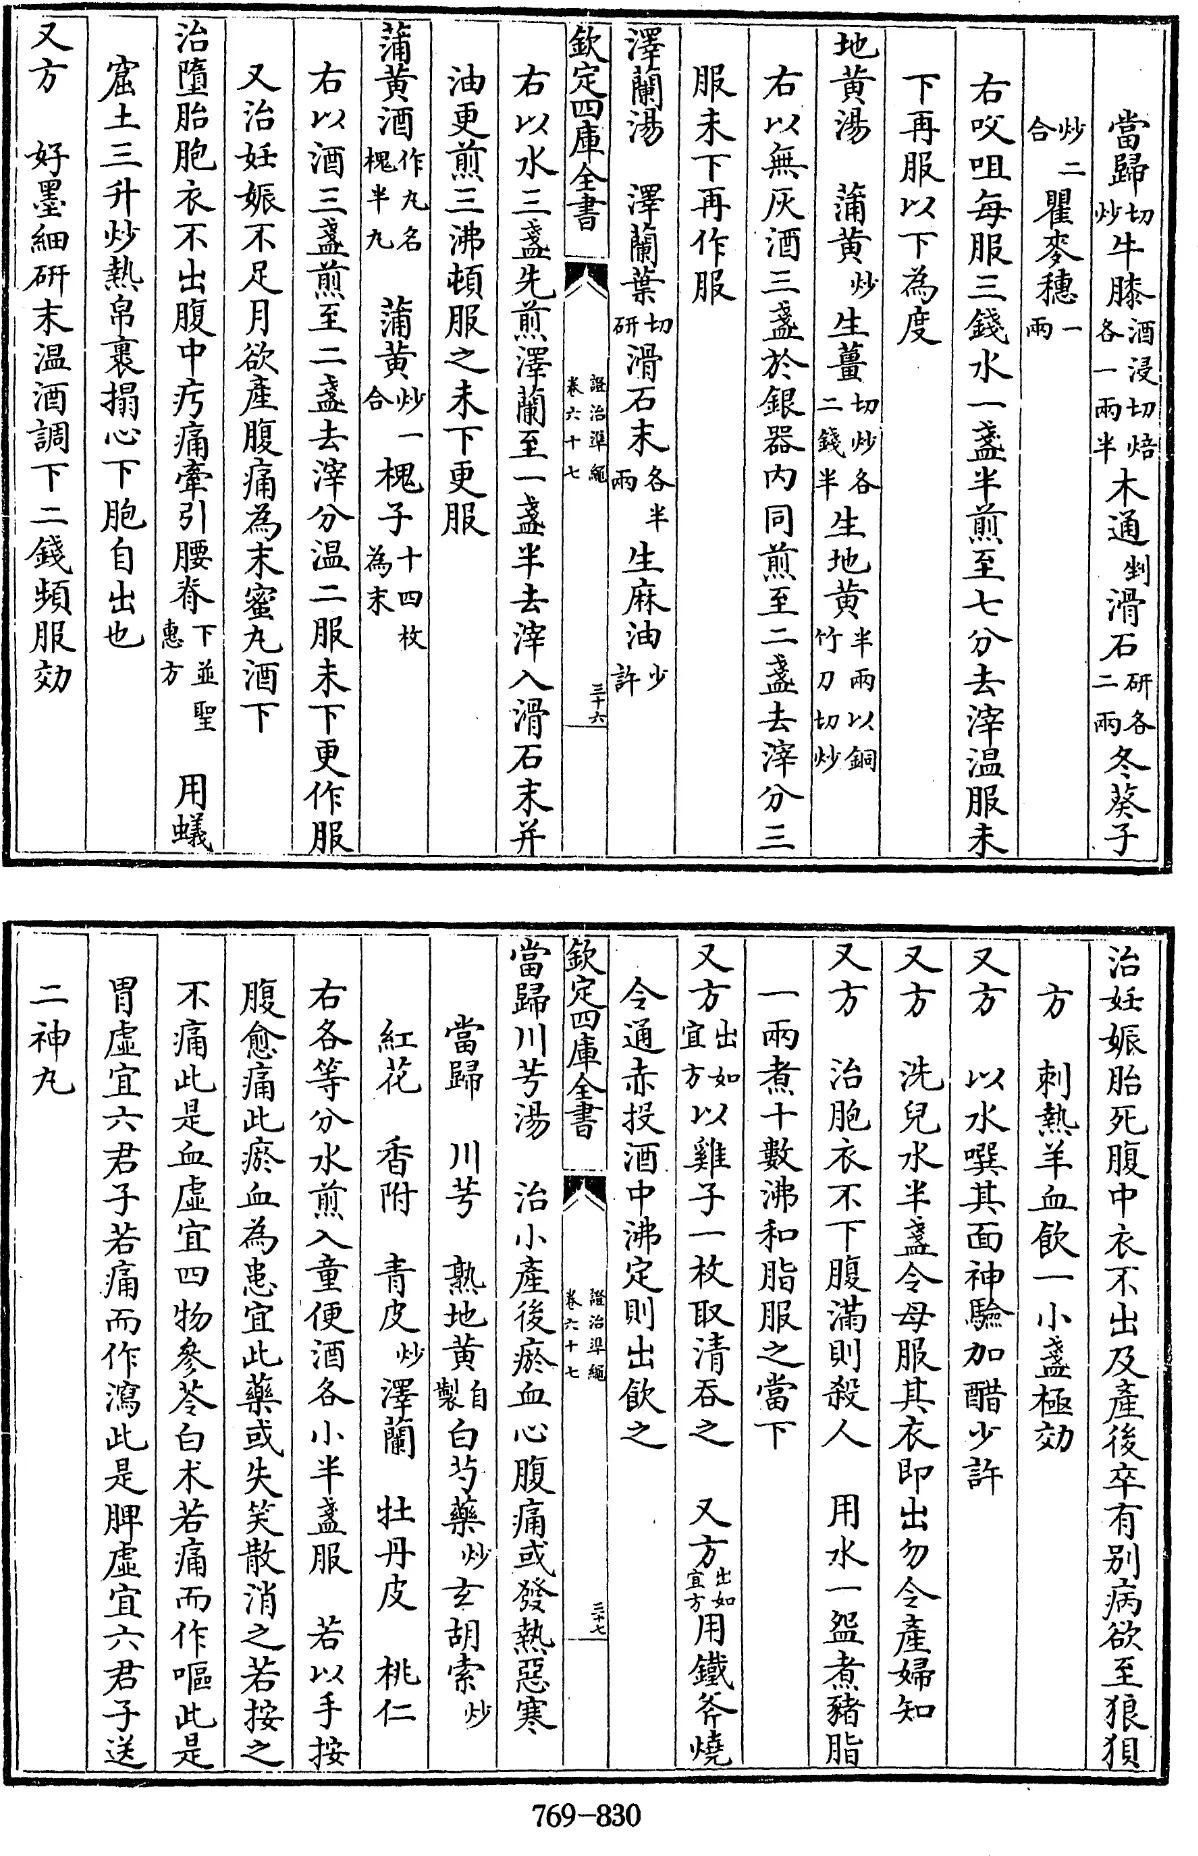 當歸切炒牛膝酒浸切焙各一兩半木通剉滑石研各二兩冬葵子
炒二合瞿麥穗一兩
右㕮咀每服三錢水一盞半煎至七分去滓温服未
下再服以下為度
地黄湯　蒲黄炒生薑切炒各二錢半生地黄半兩以銅竹刀切炒
右以無灰酒三盞於銀器内同煎至二盞去滓分三
服未下再作服
澤蘭湯　澤蘭葉切研滑石末各半兩生麻油少許
欽定四庫全書　證治準繩卷六十七　三十六
右以水三盞先煎澤蘭至一盞半去滓入滑石末并
油更煎三沸頓服之未下更服
蒲黄酒作丸名槐半丸　蒲黄炒一合槐子十四枚為末
右以酒三盞煎至二盞去滓分温二服未下更作服
又治妊娠不足月欲產腹痛為末蜜丸酒下
治墮胎胞衣不出腹中㽲痛牽引腰脊下並聖惠方　用蟻
窟土三升炒熱帛裹搨心下胞自出也
又方　好墨細研末温酒調下二錢頻服効
治妊娠胎死腹中衣不出及產後卒有别病欲至狼狽
方　刺熱羊血飲一小盞極効
又方　以水噀其面神驗加醋少許
又方　洗兒水半盞令母服其衣即出勿令產婦知
又方　治胞衣不下腹滿則殺人　用水一盌煮豬脂
一兩煮十數沸和脂服之當下
又方出如宜方以雞子一枚取清吞之　又方出如宜方用鐵斧燒
令通赤投酒中沸定則出飲之
欽定四庫全書　證治準繩卷六十七　三十七
當歸川芎湯　治小產後瘀血心腹痛或發熱惡寒
當歸　川芎　熟地黄自製白芍藥炒玄胡索炒
紅花　香附　青皮炒澤蘭　牡丹皮　桃仁
右各等分水煎入童便酒各小半盞服　若以手按
腹愈痛此瘀血為患宜此藥或失笑散消之若按之
不痛此是血虛宜四物參苓白术若痛而作嘔此是
胃虛宜六君子若痛而作瀉此是脾虛宜六君子送
二神丸
769-830